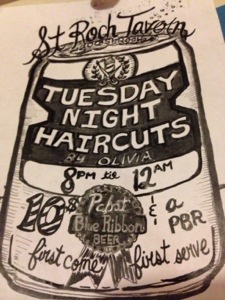 St Roch Tavern
TUESDAY
NIGHT
HAIRCUTS
BY OLIVIA
8PM til 12AM
10$ & a
PBR
Pabst
Blue Ribbon
BEER
first come first serve